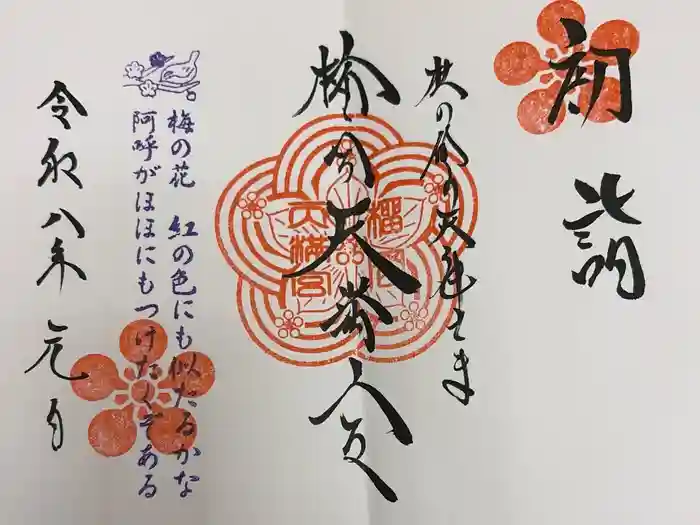 初詣
杜の都の天神さま
榴岡天満宮
榴岡
天満宮
梅の花 紅の色にも似たるかな
阿呼がほほにもつけたくぞある
令和八年元旦